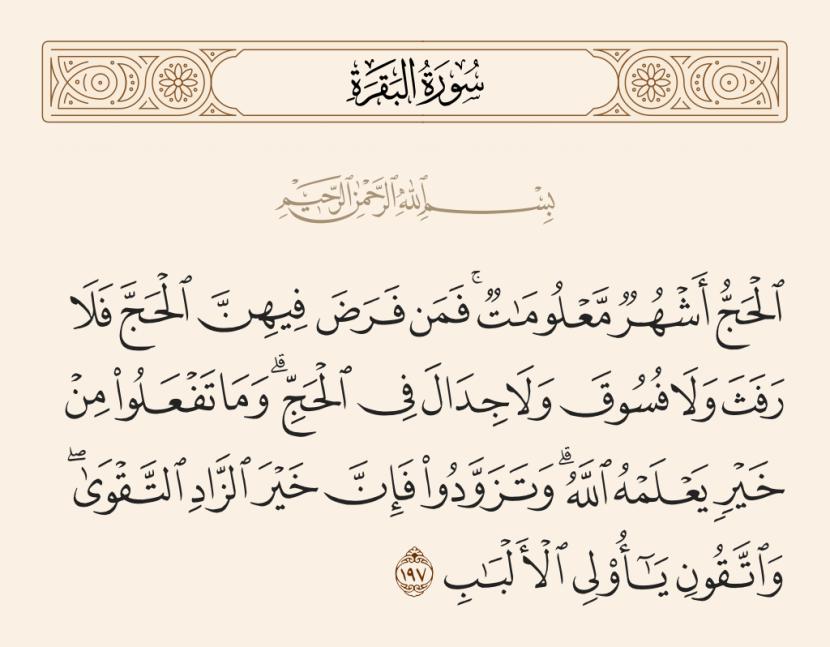 سُورَةُ البَقَرَةِ
بِسْمِ ٱللَّهِ ٱلرَّحْمَٰنِ ٱلرَّحِيمِ
ٱلْحَجُّ أَشْهُرٌ مَّعْلُومَٰتٌ ۚ فَمَن فَرَضَ فِيهِنَّ ٱلْحَجَّ فَلَا
رَفَثَ وَلَا فُسُوقَ وَلَا جِدَالَ فِى ٱلْحَجِّ ۗ وَمَا تَفْعَلُوا۟ مِنْ
خَيْرٍ يَعْلَمْهُ ٱللَّهُ ۗ وَتَزَوَّدُوا۟ فَإِنَّ خَيْرَ ٱلزَّادِ ٱلتَّقْوَىٰ ۖ
وَٱتَّقُونِ يَٰٓأُو۟لِى ٱلْأَلْبَٰبِ ١٩٧